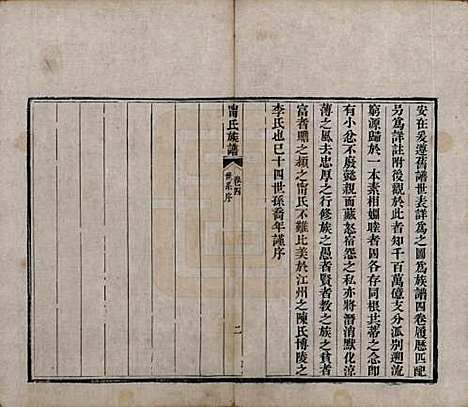 安在爰遵舊譜世表詳爲之圖爲族譜四卷履歷匹配
另爲詳註附後觀於此者知千百萬億支分派別遡流
窮源歸於一本素相婣睦者因各存同根共蒂之念卽
有小忿不廢懿親而藏怒宿怨之私亦將潛消默化澆
薄之風去忠厚之行修族之愚者賢者教之族之貧者
富者贍之潁之甯氏不難比美於江州之陳氏博陵之
李氏也已十四世孫喬年謹序
甯氏族譜
卷四
世系序
二